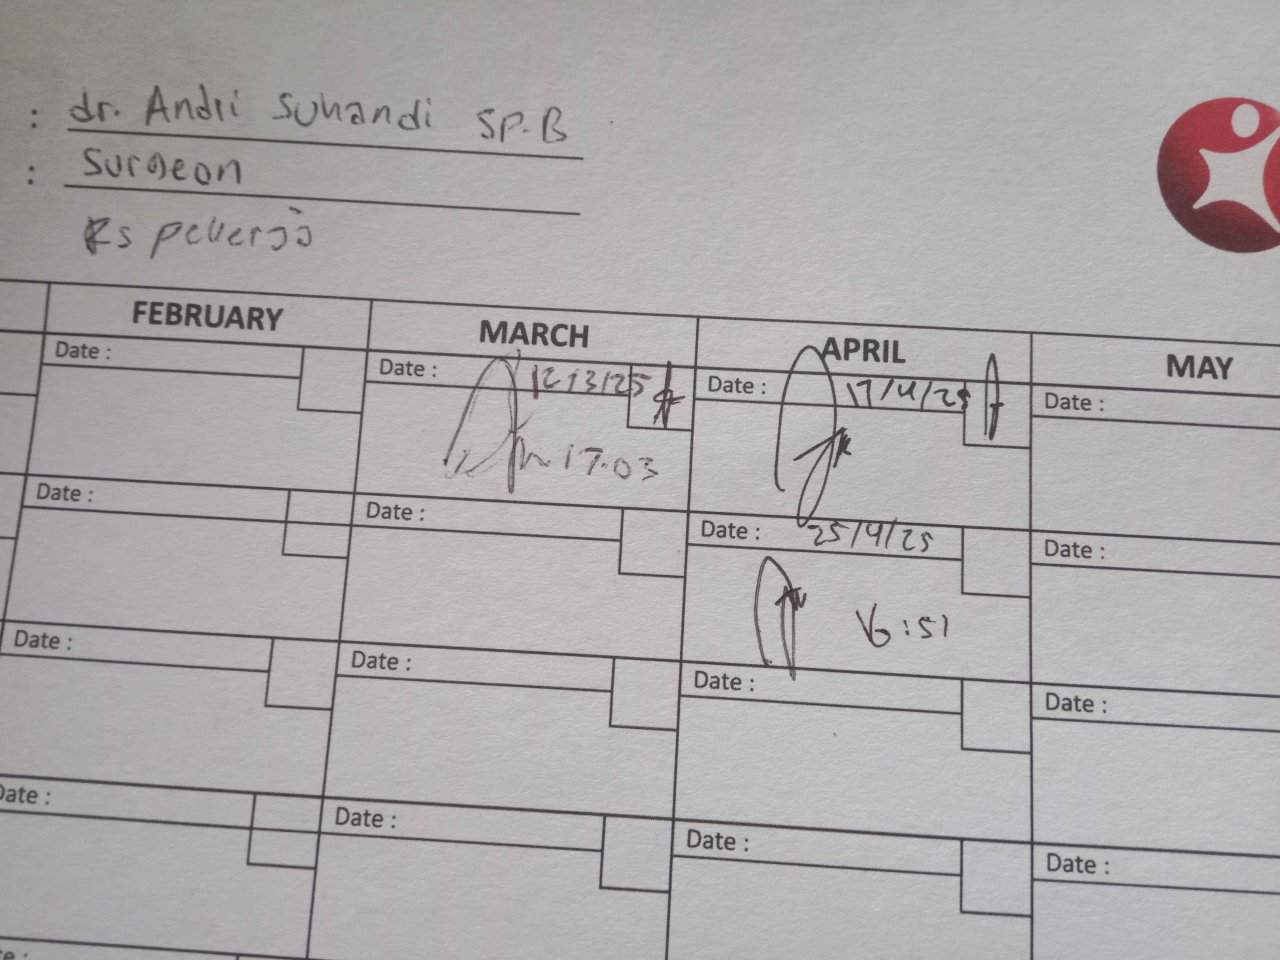 : dr. Andri Suhandi SP.B
: Surgeon
RS pekerja
FEBRUARY MARCH APRIL MAY
Date : Date : 12/3/25 Date : 17/4/25 Date :
17.03
Date : Date : Date : 25/4/25 Date :
16:51
Date : Date : Date : Date :
Date : Date : Date : Date :